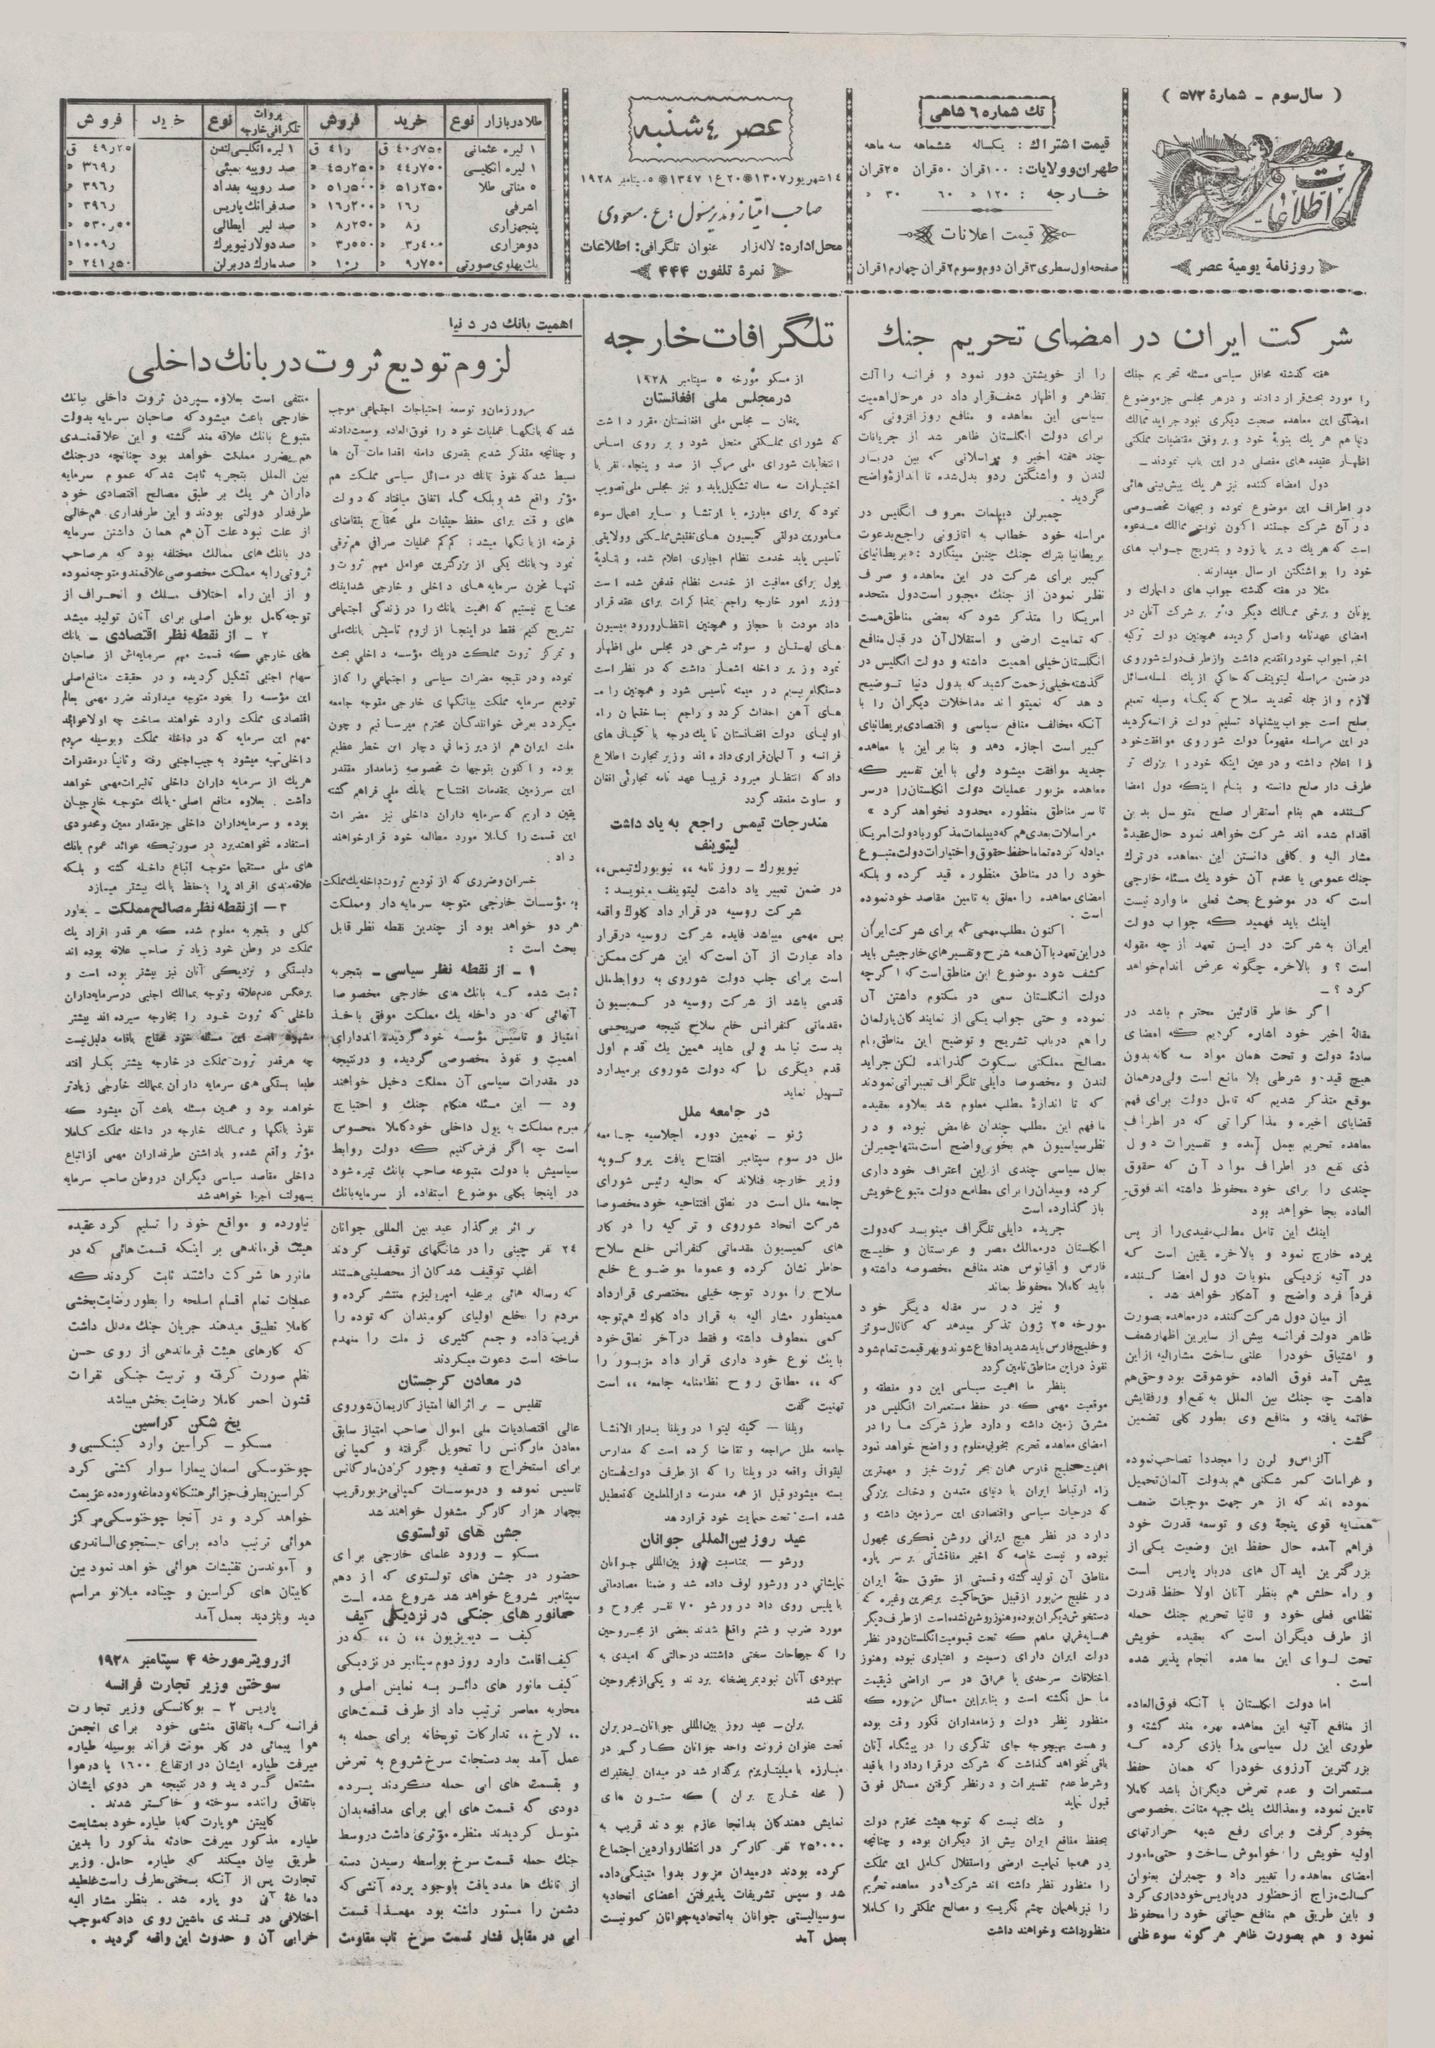 ( سال سوم - شمارهٔ ۵۷۳ )
اطلاعات
روزنامهٔ یومیهٔ عصر
تك شماره ۶ شاهی
قیمت اشتراك : یکساله ششماهه سه ماهه
طهران وولایات: ۱۰۰قران ۵۰ قران ۲۵قران
خارجه : ۱۲۰ » ۶۰ ۳۰ »
قیمت اعلانات
صفحه اول سطری ۳ قران دوم و سوم ۲ قران چهارم ۱ قران
عصر ٤ شنبه
۱٤ شهریور ۱۳۰۷ ۲۰ ع۱ ۱۳٤۷ ۵ سپتامبر ۱۹۲۸
صاحب امتیاز و مدیر مسئول : ع . مسعودی
محل اداره: لاله زار عنوان تلگرافی: اطلاعات
نمرهٔ تلفون ۴۴۴
طلا در بازار نوع خرید فروش بروات تلگرافی خارجه نوع خرید فروش
۱ لیره عثمانی ۴۰٫۷۵۰ ق ۴۱٫ ق ۱ لیره انگلیسی لندن ۴۹٫۲۵ ق
۱ لیره انگلیسی ۴۴٫۷۵۰ » ۴۵٫۲۵۰ » صد روپیه بمبئی ۳۶۹٫ »
۵ مناتی طلا ۵۱٫۲۵۰ » ۵۱٫۵۰۰ » صد روپیه بغداد ۳۹۶٫ »
اشرفی ۱۶٫ » ۱۶٫۲۰۰ » صد فرانك پاریس ۳۹۶٫ »
پنجهزاری ۸٫ » ۸٫۲۵۰ » صد لیر ایطالی ۵۳۰٫۵۰ »
دوهزاری ۳٫۴۰۰ » ۳٫۵۵۰ » صد دولار نیویرك ۱۰۰۹٫ »
یك پهلوی صورتی ۹٫۷۵۰ » ۱۰٫ » صد مارك در برلن ۲۴۱٫۵۰ »
شرکت ایران در امضای تحریم جنك
هفته گذشته محافل سیاسی مسئله تحریم جنك
را مورد بحث قرار دادند و در هر مجلسی جز موضوع
امضای این معاهده صحبت دیگری نبود جراید ممالك
دنیا هم هر یك بنوبهٔ خود و بر وفق مقتضیات مملکتی
اظهار عقیده های مفصلی در این باب نمودند ــ
دول امضاء کننده نیز هر یك پیش بینی هائی
در اطراف این موضوع نموده و بجهات مخصوصی
در آن شرکت جستند اکنون نوبت ممالك مدعوه
است که هر یك دیر یا زود و بتدریج جواب های
خود را بواشنگتن ارسال میدارند .
مثلا در هفته گذشته جواب های دانمارك و
یونان و برخی ممالك دیگر دائر بر شرکت آنان در
امضای عهدنامه واصل گردیده همچنین دولت ترکیه
اخیراً جواب خود را تقدیم داشت و از طرف دولت شوروی
در ضمن مراسله لیتوینف که حاکی از یك سلسله مسائل
لازم و از جمله تحدید سلاح که یگانه وسیله تعمیم
صلح است جواب پیشنهاد تسلیم دولت فرانسه گردید
در این مراسله مفهوماً دولت شوروی موافقت خود
را اعلام داشته و در عین اینکه خود را بزرك تر
طرف دار صلح دانسته و بنام اینکه دول امضا
کننده هم بنام استقرار صلح متوسل بدین
اقدام شده اند شرکت خواهد نمود حال عقیدهٔ
مشار الیه و کافی دانستن این معاهده در ترك
جنك عمومی یا عدم آن خود یك مسئله خارجی
است که در موضوع بحث فعلی ما وارد نیست
اینك باید فهمید که جواب دولت
ایران به شرکت در این تعهد از چه مقوله
است ؟ و بالاخره چگونه عرض اندام خواهد
کرد ؟ ــ
اگر خاطر قارئین محترم باشد در
مقالهٔ اخیر خود اشاره کردیم که امضای
سادهٔ دولت و تحت همان مواد سه گانه بدون
هیچ قید و شرطی بلا مانع است ولی در همان
موقع متذکر شدیم که تامل دولت برای فهم
قضایای اخیره و مذاکراتی که در اطراف
معاهده تحریم بعمل آمده و تفسیرات دول
ذی نفع در اطراف مواد آن که حقوق
چندی را برای خود محفوظ داشته اند فوق-
العاده بجا خواهد بود
اینك این تامل مطالب مفیدی را از پس
پرده خارج نمود و بالاخره یقین است که
در آتیه نزدیکی منویات دول امضا کننده
فرداً فرد واضح و آشکار خواهد شد .
از میان دول شرکت کننده در معاهده بصورت
ظاهر دولت فرانسه بیش از سایرین اظهار شعف
و اشتیاق خودرا علنی ساخت مشار الیه از این
پیش آمد فوق العاده خوشوقت بود و حق هم
داشت چه جنك بین الملل به نفع او و رفقایش
خاتمه یافته و منافع وی بطور کلی تضمین
گشت .
آلزاس و لرن را مجدداً تصاحب نموده
و غرامات کمر شکنی هم بدولت آلمان تحمیل
نموده اند که از هر جهت موجبات ضعف
همسایه قوی پنجهٔ وی و توسعه قدرت خود
فراهم آمده حال حفظ این وضعیت یکی از
بزرگترین اید آل های دربار پاریس است
و راه حلش هم بنظر آنان اولا حفظ قدرت
نظامی فعلی خود و ثانیا تحریم جنك حمله
از طرف دیگران است که بعقیده خویش
تحت لوای این معاهده انجام پذیر شده
است .
اما دولت انگلستان با آنکه فوق العاده
از منافع آتیه این معاهده بهره مند گشته و
طوری این رل سیاسی را بازی کرده که
بزرگترین آرزوی خودرا که همان حفظ
مستعمرات و عدم تعرض دیگران باشد کاملا
تامین نموده و معذالك یك جبهه متانت بخصوصی
بخود گرفت و برای رفع شبهه حرارتهای
اولیه خویش را خواموش ساخت و حتی مامور
امضای معاهده را تغییر داد و چمبرلن بعنوان
کسالت مزاج از حضور در پاریس خود داری کرد
و باین طریق هم منافع حیاتی خود را محفوظ
نمود و هم بصورت ظاهر هر گونه سوء ظنی
را از خویشتن دور نمود و فرانسه را آلت
تظاهر و اظهار شعف قرار داد در مرحل اهمیت
سیاسی این معاهده و منافع روز افزونی که
برای دولت انگلستان ظاهر شد از جریانات
چند هفته اخیر و مراسلاتی که بین دربار
لندن و واشنگتن ردو بدل شده تا اندازهٔ واضح
گردید .
چمبرلن دیپلمات معروف انگلیس در
مراسله خود خطاب به اتازونی راجع بدعوت
بریطانیا بترك جنك چنین مینگارد : « بریطانیای
کبیر برای شرکت در این معاهده و صرف
نظر نمودن از جنك مجبور است دول متحده
امریکا را متذکر شود که بعضی مناطق هست
که تمامیت ارضی و استقلال آن در قبال منافع
انگلستان خیلی اهمیت داشته و دولت انگلیس در
گذشته خیلی زحمت کشید که بدول دنیا توضیح
دهد که نمیتواند مداخلات دیگران را با
آنکه مخالف منافع سیاسی و اقتصادی بریطانیای
کبیر است اجازه دهد و بنابر این با معاهده
جدید موافقت میشود ولی با این تفسیر که
معاهده مزبور عملیات دولت انگلستان را در سر
تا سر مناطق منظوره محدود نخواهد کرد »
مراسلات بعدی هم که دیپلمات مذکور با دولت امریکا
مبادله کرده تماما حفظ حقوق و اختیارات دولت متبوع
خود را در مناطق منظوره قید کرده و بلکه
امضای معاهده را معلق به تامین مقاصد خود نموده
است .
اکنون مطلب مهمی که برای شرکت ایران
در این تعهد با آن همه شرح و تفسیرهای خارجیش باید
کشف شود موضوع این مناطق است که اگرچه
دولت انگلستان سعی در مکتوم داشتن آن
نموده و حتی جواب یکی از نمایندگان پارلمان
را هم در باب تشریح و توضیح این مناطق بنام
مصالح مملکتی سکوت گذرانده لکن جراید
لندن و مخصوصا دایلی تلگراف تعبیراتی نمودند
که تا اندازهٔ مطلب معلوم شد بعلاوه بعقیده
ما فهم این مطلب چندان غامض نبوده و در
نظر سیاسیون هم بخوبی واضح است منتها چمبرلن
بعال سیاسی چندی از این اعتراف خود داری
کرده و میدان را برای مطامع دولت متبوع خویش
باز گذارده است
جریده دایلی تلگراف مینویسد که دولت
انگلستان در ممالك مصر و عربستان و خلیج
فارس و اقیانوس هند منافع مخصوصه داشته و
باید کاملا محفوظ بماند
و نیز در سر مقاله دیگر خود
مورخه ۲۵ ژون تذکر میدهد که کانال سوئز
و خلیج فارس باید شدیدا دفاع شوند و بهر قیمت تمام شود
نفوذ در این مناطق تامین گردد
بنظر ما اهمیت سیاسی این دو منطقه و
موقعیت مهمی که در حفظ مستعمرات انگلیس در
مشرق زمین داشته و دارد طرز شرکت ما را در
امضای معاهده تحریم بخوبی معلوم و واضح خواهد نمود
اهمیت خلیج فارس همان بحر ثروت خیز و مهمترین
راه ارتباط ایران با دنیای متمدن و دخالت بزرگی
که در حیات سیاسی و اقتصادی این سرزمین داشته و
دارد در نظر هیچ ایرانی روشن فکری مجهول
نبوده و نیست خاصه که اخیر مناقشاتی بر سر پاره
مناطق آن تولید گشته و قسمتی از حقوق حقهٔ ایران
در خلیج مزبور از قبیل حق حاکمیت بر بحرین و غیره که
دستخوش دیگران بوده و هنوز روشن نشده است از طرف دیگر
همسایه غربی ما هم که تحت قیمومیت انگلستان و در نظر
دولت ایران دارای رسمیت و اعتباری نبوده و هنوز
اختلافات سرحدی با عراق در سر اراضی ذیقیمت
ما حل نگشته است و بنابر این مسائل مزبوره که
منظور نظر دولت و زمامداران فکور وقت بوده
و هست بهیچوجه جای تذکری را در پیشگاه آنان
باقی نخواهد گذاشت که شرکت در قرارداد را با قید
و شرط عدم تفسیرات و در نظر گرفتن مسائل فوق
قبول نماید
و شك نیست که توجه هیئت محترم دولت
بحفظ منافع ایران بیش از دیگران بوده و چنانچه
در همه جا تمامیت ارضی و استقلال کامل این مملکت
را منظور نظر داشته اند شرکت در معاهده تحریم
را نیز با همان چشم نگریسته و مصالح مملکتی را کاملا
منظور داشته و خواهند داشت
تلگرافات خارجه
از مسکو مورخه ۵ سپتامبر ۱۹۲۸
در مجلس ملی افغانستان
پغمان ــ مجلس ملی افغانستان مقرر داشت
که شورای مملکتی منحل شود و بر روی اساس
انتخابات شورای ملی مرکب از صد و پنجاه نفر با
اختیارات سه ساله تشکیل یابد و نیز مجلس ملی تصویب
نمود که برای مبارزه با ارتشا و سایر اعمال سوء
مامورین دولتی کمیسیون های تفتیش مملکتی و ولایتی
تاسیس یابد خدمت نظام اجباری اعلام شده و تادیهٔ
پول برای معافیت از خدمت نظام قدغن شده است
وزیر امور خارجه راجع بمذاکرات برای عقد قرار
داد مودت با حجاز و همچنین انتظار ورود میسیون
های لهستان و سوئد شرحی در مجلس ملی اظهار
نمود وزیر داخله اشعار داشت که در نظر است
دستگاه بیسیم در میمنه تاسیس شود و همچنین راه
های آهن احداث گردد و راجع بساختمان راه
اولیای دولت افغانستان تا یك درجه با کمپانی های
فرانسه و آلمان قراری داده اند وزیر تجارت اطلاع
داد که انتظار میرود قریبا عهد نامه تجارتی افغان
و ساوت منعقد گردد
مندرجات تیمس راجع به یاد داشت
لیتوینف
نیویورك ــ روزنامه ،، نیویورك تیمس،،
در ضمن تعبیر یاد داشت لیتوینف مینویسد :
شرکت روسیه در قرار داد کلوك واقعه
بس مهمی میباشد فایده شرکت روسیه در قرار
داد عبارت از آن است که این شرکت ممکن
است برای جلب دولت شوروی به روابط ملل
قدمی باشد از شرکت روسیه در کمیسیون
مقدماتی کنفرانس خلع سلاح نتیجه صریحی
بدست نیامد ولی شاید همین یك قدم اول
قدم دیگری را که دولت شوروی برمیدارد
تسهیل نماید
در جامعه ملل
ژنو ــ نهمین دوره اجلاسیه جامعه
ملل در سوم سپتامبر افتتاح یافت پروکوپه
وزیر خارجه فنلاند که حالیه رئیس شورای
جامعه ملل است در نطق افتتاحیه خود مخصوصا
شرکت اتحاد شوروی و ترکیه را در کار
های کمیسیون مقدماتی کنفرانس خلع سلاح
خاطر نشان کرده و عموما موضوع خلع
سلاح را مورد توجه خیلی مختصری قرارداد
همینطور مشار الیه به قرار داد کلوك هم توجه
کمی معطوف داشته و فقط در آخر نطق خود
با یك نوع خود داری قرار داد مزبور را
که ،، مطابق روح نظامنامه جامعه ،، است
تهنیت گفت
ویلنا ــ کمیته لیتوا در ویلنا بدار الانشا
جامعه ملل مراجعه و تقاضا کرده است که مدارس
لیتوانی واقعه در ویلنا را که از طرف دولت لهستان
بسته میشود و قبل از همه مدرسه دار المعلمین که تعطیل
شده است تحت حمایت خود قرار دهد
عید روز بین المللی جوانان
ورشو ــ بمناسبت روز بین المللی جوانان
نمایشاتی در ورشو و لوف داده شد و ضمنا مصادماتی
با پلیس روی داد در ورشو ۷۰ نفر مجروح و
مورد ضرب و شتم واقع شدند بعضی از مجروحین
را که جراحات سختی داشتند در حالتی که امیدی به
بهبودی آنان نبود بمریضخانه بردند و یکی از مجروحین
تلف شد
برلن ــ عید روز بین المللی جوانان در برلن
تحت عنوان فرونت واحد جوانان کارگر در
مبارزه با میلیتاریزم برگذار شد در میدان لیختنبرك
( محله خارج برلن ) که ستون های
نمایش دهندگان بدانجا عازم بودند قریب به
۲۵،۰۰۰ نفر کارگر در انتظار واردین اجتماع
کرده بودند در میدان مزبور بدوا متینگی داده
شد و سپس تشریفات پذیرفتن اعضای اتحادیه
سوسیالیستی جوانان به اتحادیه جوانان کمونیست
بعمل آمد
اهمیت بانك در دنیا
لزوم تودیع ثروت در بانك داخلی
مرور زمان و توسعه احتیاجات اجتماعی موجب
شد که بانکها عملیات خود را فوق العاده وسعت دادند
و چنانچه متذکر شدیم بقدری دامنه اقدامات آن ها
بسیط شد که نفوذ بانك در مسائل سیاسی مملکت هم
مؤثر واقع شد و بلکه گاه اتفاق میافتاد که دولت
های وقت برای حفظ حیثیات ملی محتاج بتقاضای
قرضه از بانکها میشد : کم کم عملیات صرافی هم ترقی
نمود و بانك یکی از بزرگترین عوامل مهم ثروت و
تنها مخزن سرمایه های داخلی و خارجی شد اینك
محتاج نیستیم که اهمیت بانك را در زندگی اجتماعی
تشریح کنیم فقط در اینجا از لزوم تاسیس بانك ملی
و تمرکز ثروت مملکت در یك مؤسسه داخلی بحث
نموده و در نتیجه مضرات سیاسی و اجتماعی را که از
تودیع سرمایه مملکت ببانکهای خارجی متوجه جامعه
میگردد بعرض خوانندگان محترم میرسانیم و چون
ملت ایران هم از دیر زمانی دچار این خطر عظیم
بوده و اکنون بتوجهات مخصوصهٔ زمامدار مقتدر
این سرزمین بمقدمات افتتاح بانك ملی فراهم گشته
یقین داریم که سرمایه داران داخلی نیز مضرات
این قسمت را کاملا مورد مطالعه خود قرار خواهند
داد .
خسران و ضرری که از تودیع ثروت داخله یك مملکت
بمؤسسات خارجی متوجه سرمایه دار و مملکت
هر دو خواهد بود از چندین نقطه نظر قابل
بحث است :
۱ ــ از نقطه نظر سیاسی ــ بتجربه
ثابت شده که بانك های خارجی مخصوصا
آنهائی که در داخله یك مملکت موفق باخذ
امتیاز و تاسیس مؤسسه خود گردیده اند دارای
اهمیت و نفوذ مخصوصی گردیده و در نتیجه
در مقدرات سیاسی آن مملکت دخیل خواهند
بود ــ این مسئله هنگام جنك و احتیاج
مبرم مملکت به پول داخلی خود کاملا محسوس
است چه اگر فرض کنیم که دولت روابط
سیاسیش با دولت متبوعه صاحب بانك تیره شود
در اینجا بکلی موضوع استفاده از سرمایه بانك
منتفی است بعلاوه سپردن ثروت داخلی ببانك
خارجی باعث میشود که صاحبان سرمایه بدولت
متبوع بانك علاقه مند گشته و این علاقمندی
هم بضرر مملکت خواهد بود چنانچه در جنك
بین الملل بتجربه ثابت شد که عموم سرمایه
داران هر یك بر طبق مصالح اقتصادی خود
طرفدار دولتی بودند و این طرفداری هم خالی
از علت نبود علت آن هم همان داشتن سرمایه
در بانك های ممالك مختلفه بود که هر صاحب
ثروتی را به مملکت مخصوصی علاقمند و متوجه نموده
و از این راه اختلاف مسلك و انحراف از
توجه کامل بوطن اصلی برای آنان تولید میشد
۲ ــ از نقطه نظر اقتصادی ــ بانك
های خارجی که قسمت مهم سرمایه اش از صاحبان
سهام اجنبی تشکیل گردیده و در حقیقت منافع اصلی
این مؤسسه را بخود متوجه میدارند ضرر مهمی بعالم
اقتصادی مملکت وارد خواهند ساخت چه اولا عواید
مهم این سرمایه که در داخله مملکت و بوسیله مردم
داخلی تهیه میشود به جیب اجنبی رفته و ثانیا در مقدرات
هر یك از سرمایه داران داخلی تاثیرات مهمی خواهد
داشت . بعلاوه منافع اصلی بانك متوجه خارجیان
بوده و سرمایه داران داخلی جز مقدار معین و محدودی
استفاده نخواهند برد در صورتیکه عوائد عموم بانك
های ملی مستقیما متوجه اتباع داخله گشته و بلکه
علاقه مندی افراد را بحفظ بانك بیشتر میسازد
۳ ــ از نقطه نظر مصالح مملکت ــ بطور
کلی و بتجربه معلوم شده که هر قدر افراد یك
مملکت در وطن خود زیاد تر صاحب علاقه بوده اند
دلبستگی و نزدیکی آنان نیز بیشتر بوده است و
برعکس عدم علاقه و توجه بممالك اجنبی در سرمایه داران
داخلی که ثروت خود را بخارجه سپرده اند بیشتر
مشهود است این مسئله خود محتاج باقامه دلیل نیست
چه هر قدر ثروت مملکت در خارجه بیشتر بکار افتد
طبعا بستگی های سرمایه داران بممالك خارجی زیادتر
خواهد بود و همین مسئله باعث آن میشود که
نفوذ بانکها و ممالك خارجه در داخله مملکت کاملا
مؤثر واقع شده و با داشتن طرفداران مهمی از اتباع
داخلی مقاصد سیاسی دیگران در وطن صاحب سرمایه
بسهولت اجرا خواهد شد
بر اثر برگذار عید بین المللی جوانان
۲٤ نفر چینی را در شانگهای توقیف کردند
اغلب توقیف شدگان از محصلینی هستند
که رساله هائی برعلیه امپریالیزم منتشر کرده و
مردم را بخلع اولیای کومیندان که توده را
فریب داده و جمع کثیری از ملت را منهدم
ساخته است دعوت میکردند
در معادن گرجستان
تفلیس ــ بر اثر الغا امتیاز کاریمان شوروی
عالی اقتصادیات ملی اموال صاحب امتیاز سابق
معادن مارگانس را تحویل گرفته و کمپانی
برای استخراج و تصفیه و جور کردن مارگانس
تاسیس نموده و در موسسات کمپانی مزبور قریب
بچهار هزار کارگر مشغول خواهند شد
جشن های تولستوی
مسکو ــ ورود علمای خارجی برای
حضور در جشن های تولستوی که از دهم
سپتامبر شروع خواهد شد شروع شده است
مانور های جنگی در نزدیکی کیف
کیف ــ دیویزیون ،، ن ،، که در
کیف اقامت دارد روز دوم سپتامبر در نزدیکی
کیف مانور های دائر به نمایش اصلی و
محاربه معاصر ترتیب داد از طرف قسمت های
،، لارخ ،، تدارکات توپخانه برای حمله به
عمل آمد بعد دستجات سرخ شروع به تعرض
و بقسمت های آبی حمله میکردند پرده
دودی که قسمت های آبی برای مدافعه بدان
متوسل گردیدند منظره مؤثری داشت در وسط
جنك حمله قسمت سرخ بواسطه رسیدن دسته
از تانك ها مدد یافت باوجود پرده آتشی که
دشمن را مستور داشته بود مهمذا قسمت
آبی در مقابل فشار قسمت سرخ تاب مقاومت
نیاورده و مواقع خود را تسلیم کرد عقیده
هیئت فرماندهی بر اینکه قسمت هائی که در
مانورها شرکت داشتند ثابت کردند که
عملیات تمام اقسام اسلحه را بطور رضایت بخشی
کاملا تطبیق میدهند جریان جنك مدلل داشت
که کارهای هیئت فرماندهی از روی حسن
نظم صورت گرفته و تربیت جنگی نفرات
قشون احمر کاملا رضایت بخش میباشد
یخ شکن کراسین
مسکو ــ کراسین وارد کینکسبی و
چوخنوسکی آسمان پیما را سوار کشتی کرد
کراسین بطرف جزائر هتنکانه و دماغه و رمده عزیمت
خواهد کرد و در آنجا چوخنوسکی مرکز
هوائی ترتیب داده برای جستجوی الساندری
و آموندسن تفتیشات هوائی خواهد نمود بین
کاپیتان های کراسین و چیتاده میلانو مراسم
دید و بازدید بعمل آمد
از رویتر مورخه ۴ سپتامبر ۱۹۲۸
سوختن وزیر تجارت فرانسه
پاریس ۲ ــ بوکانسکی وزیر تجارت
فرانسه که باتفاق منشی خود برای انجمن
هوا پیمائی در کلر مونت فراند بوسیله طیاره
میرفت طیاره ایشان در ارتفاع ۱۶۰۰ پا در هوا
مشتعل گردید و در نتیجه هر دوی ایشان
باتفاق راننده سوخته و خاکستر شدند .
کاپیتن هویارت که با طیاره خود بمشایعت
طیاره مذکور میرفت حادثه مذکور را بدین
طریق بیان میکند که طیاره حامل وزیر
تجارت پس از آنکه بسختی بطرف راست غلطید
دماغهٔ آن دو پاره شد . بنظر مشار الیه
اختلافی در تندی ماشین روی داد که موجب
خرابی آن و حدوث این واقعه گردید .